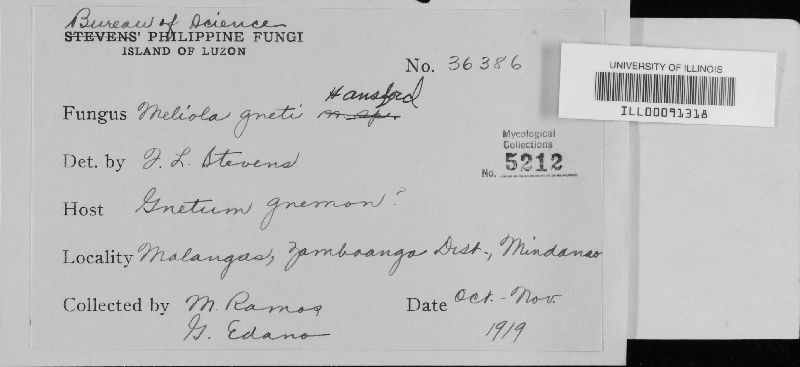 Bureau of Science
STEVENS' PHILIPPINE FUNGI
ISLAND OF LUZON
No. 36386
UNIVERSITY OF ILLINOIS
ILL00091318
Fungus Meliola gneti n. sp. Hansford
Mycological
Collections
No. 5212
Det. by F. L. Stevens
Host Gnetum gnemon?
Locality Malangas, Zamboanga Dist., Mindanao
Collected by M. Ramos
G. Edano
Date Oct.-Nov.
1919